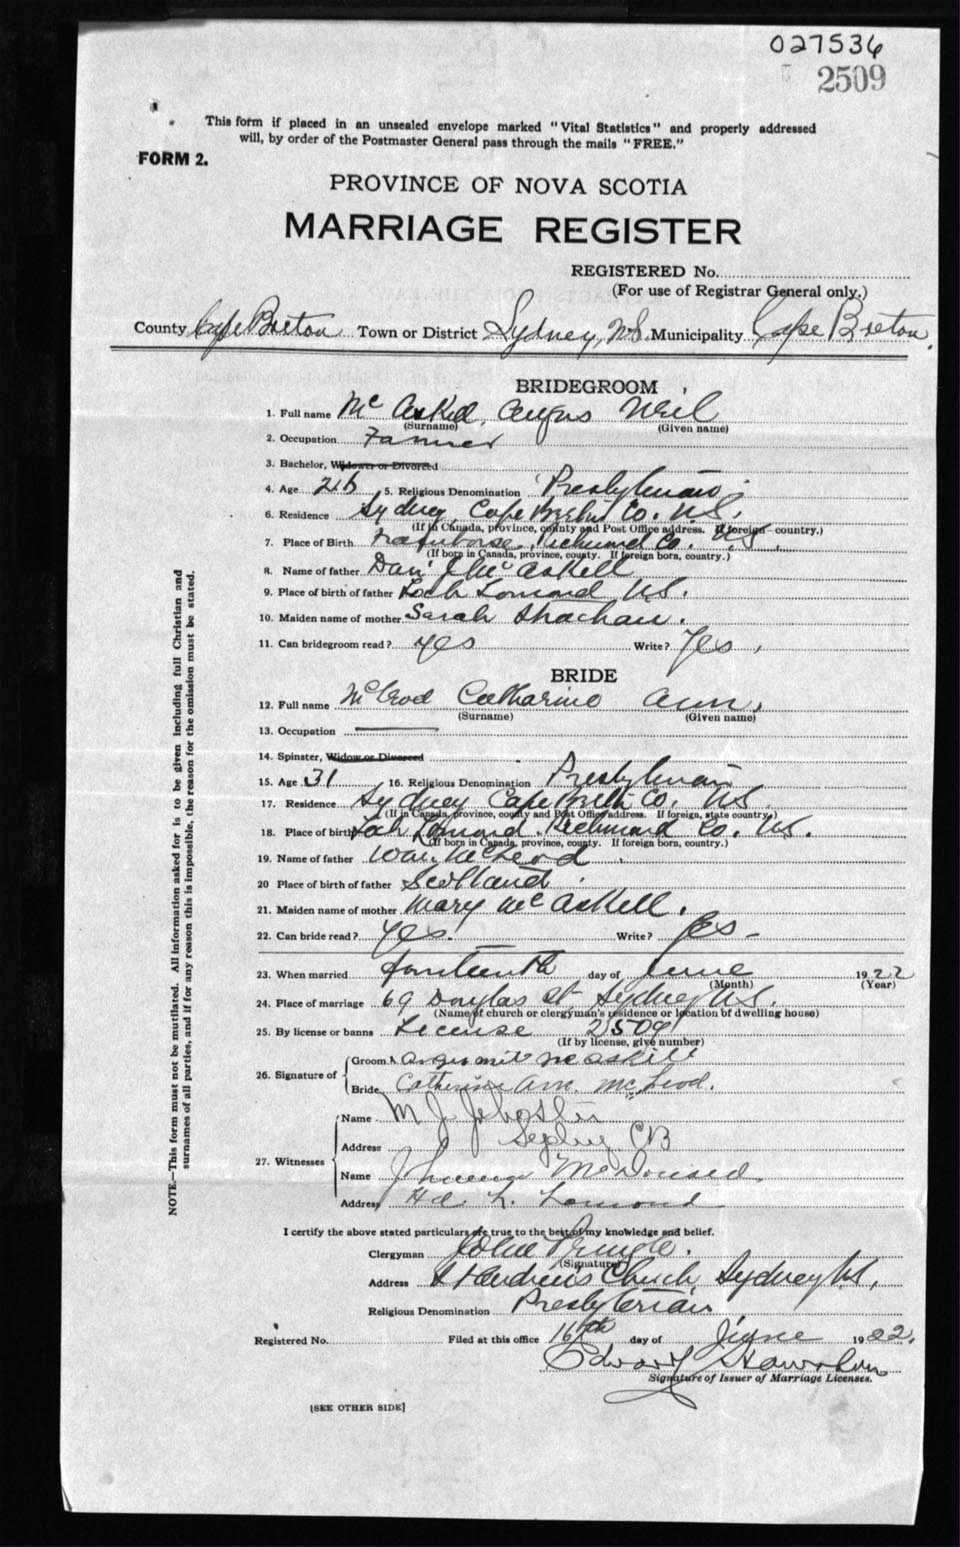 027536
2509
This form if placed in an unsealed envelope marked "Vital Statistics" and properly addressed
will, by order of the Postmaster General pass through the mails "FREE."
FORM 2.
PROVINCE OF NOVA SCOTIA
MARRIAGE REGISTER
REGISTERED No.
(For use of Registrar General only.)
County Cape Breton Town or District Sydney, N.S. Municipality Cape Breton.
BRIDEGROOM
1. Full name Mc Askill, Angus Neil
(Surname) (Given name)
2. Occupation Farmer
3. Bachelor, Widower or Divorced
4. Age 26 5. Religious Denomination Presbyterian
6. Residence Sydney, Cape Breton Co. N.S.
(If in Canada, province, county and Post Office address. If foreign country.)
7. Place of Birth Richmond Co. N.S.
(If born in Canada, province, county. If foreign born, country.)
8. Name of father Dan J Mc Askell
9. Place of birth of father Loch Lomond N.S.
10. Maiden name of mother Sarah Strachan.
11. Can bridegroom read? yes Write? Yes,
BRIDE
12. Full name McLeod Catharine Ann,
(Surname) (Given name)
13. Occupation
14. Spinster, Widow or Divorced
15. Age 31 16. Religious Denomination Presbyterian
17. Residence Sydney Cape Breton Co. N.S.
(If in Canada, province, county and Post Office address. If foreign, state country)
18. Place of birth Loch Lomond. Richmond Co. N.S.
(If born in Canada, province, county. If foreign born, country.)
19. Name of father McLeod
20 Place of birth of father Scotland
21. Maiden name of mother Mary Mc Askell.
22. Can bride read? Yes. Write? Yes -
23. When married fourteenth day of June 1922
(Month) (Year)
24. Place of marriage 69 Douglas St. Sydney N.S.
(Name of church or clergyman's residence or location of dwelling house)
25. By license or banns License 2509
(If by license, give number)
26. Signature of
Groom McAskill
Bride Catherine Ann. McLeod.
27. Witnesses
Name M J
Address CB
Name McDonald
Address L. Lomond
I certify the above stated particulars are true to the best of my knowledge and belief.
Clergyman John Pringle.
(Signature)
Address St Andrew's Church, Sydney N.S.
Religious Denomination Presbyterian
Registered No. Filed at this office 16th day of June 1922.
Signature of Issuer of Marriage Licenses.
[SEE OTHER SIDE]
NOTE.—This form must not be mutilated. All information asked for is to be given including full Christian and
surnames of all parties, and if for any reason this is impossible, the reason for the omission must be stated.